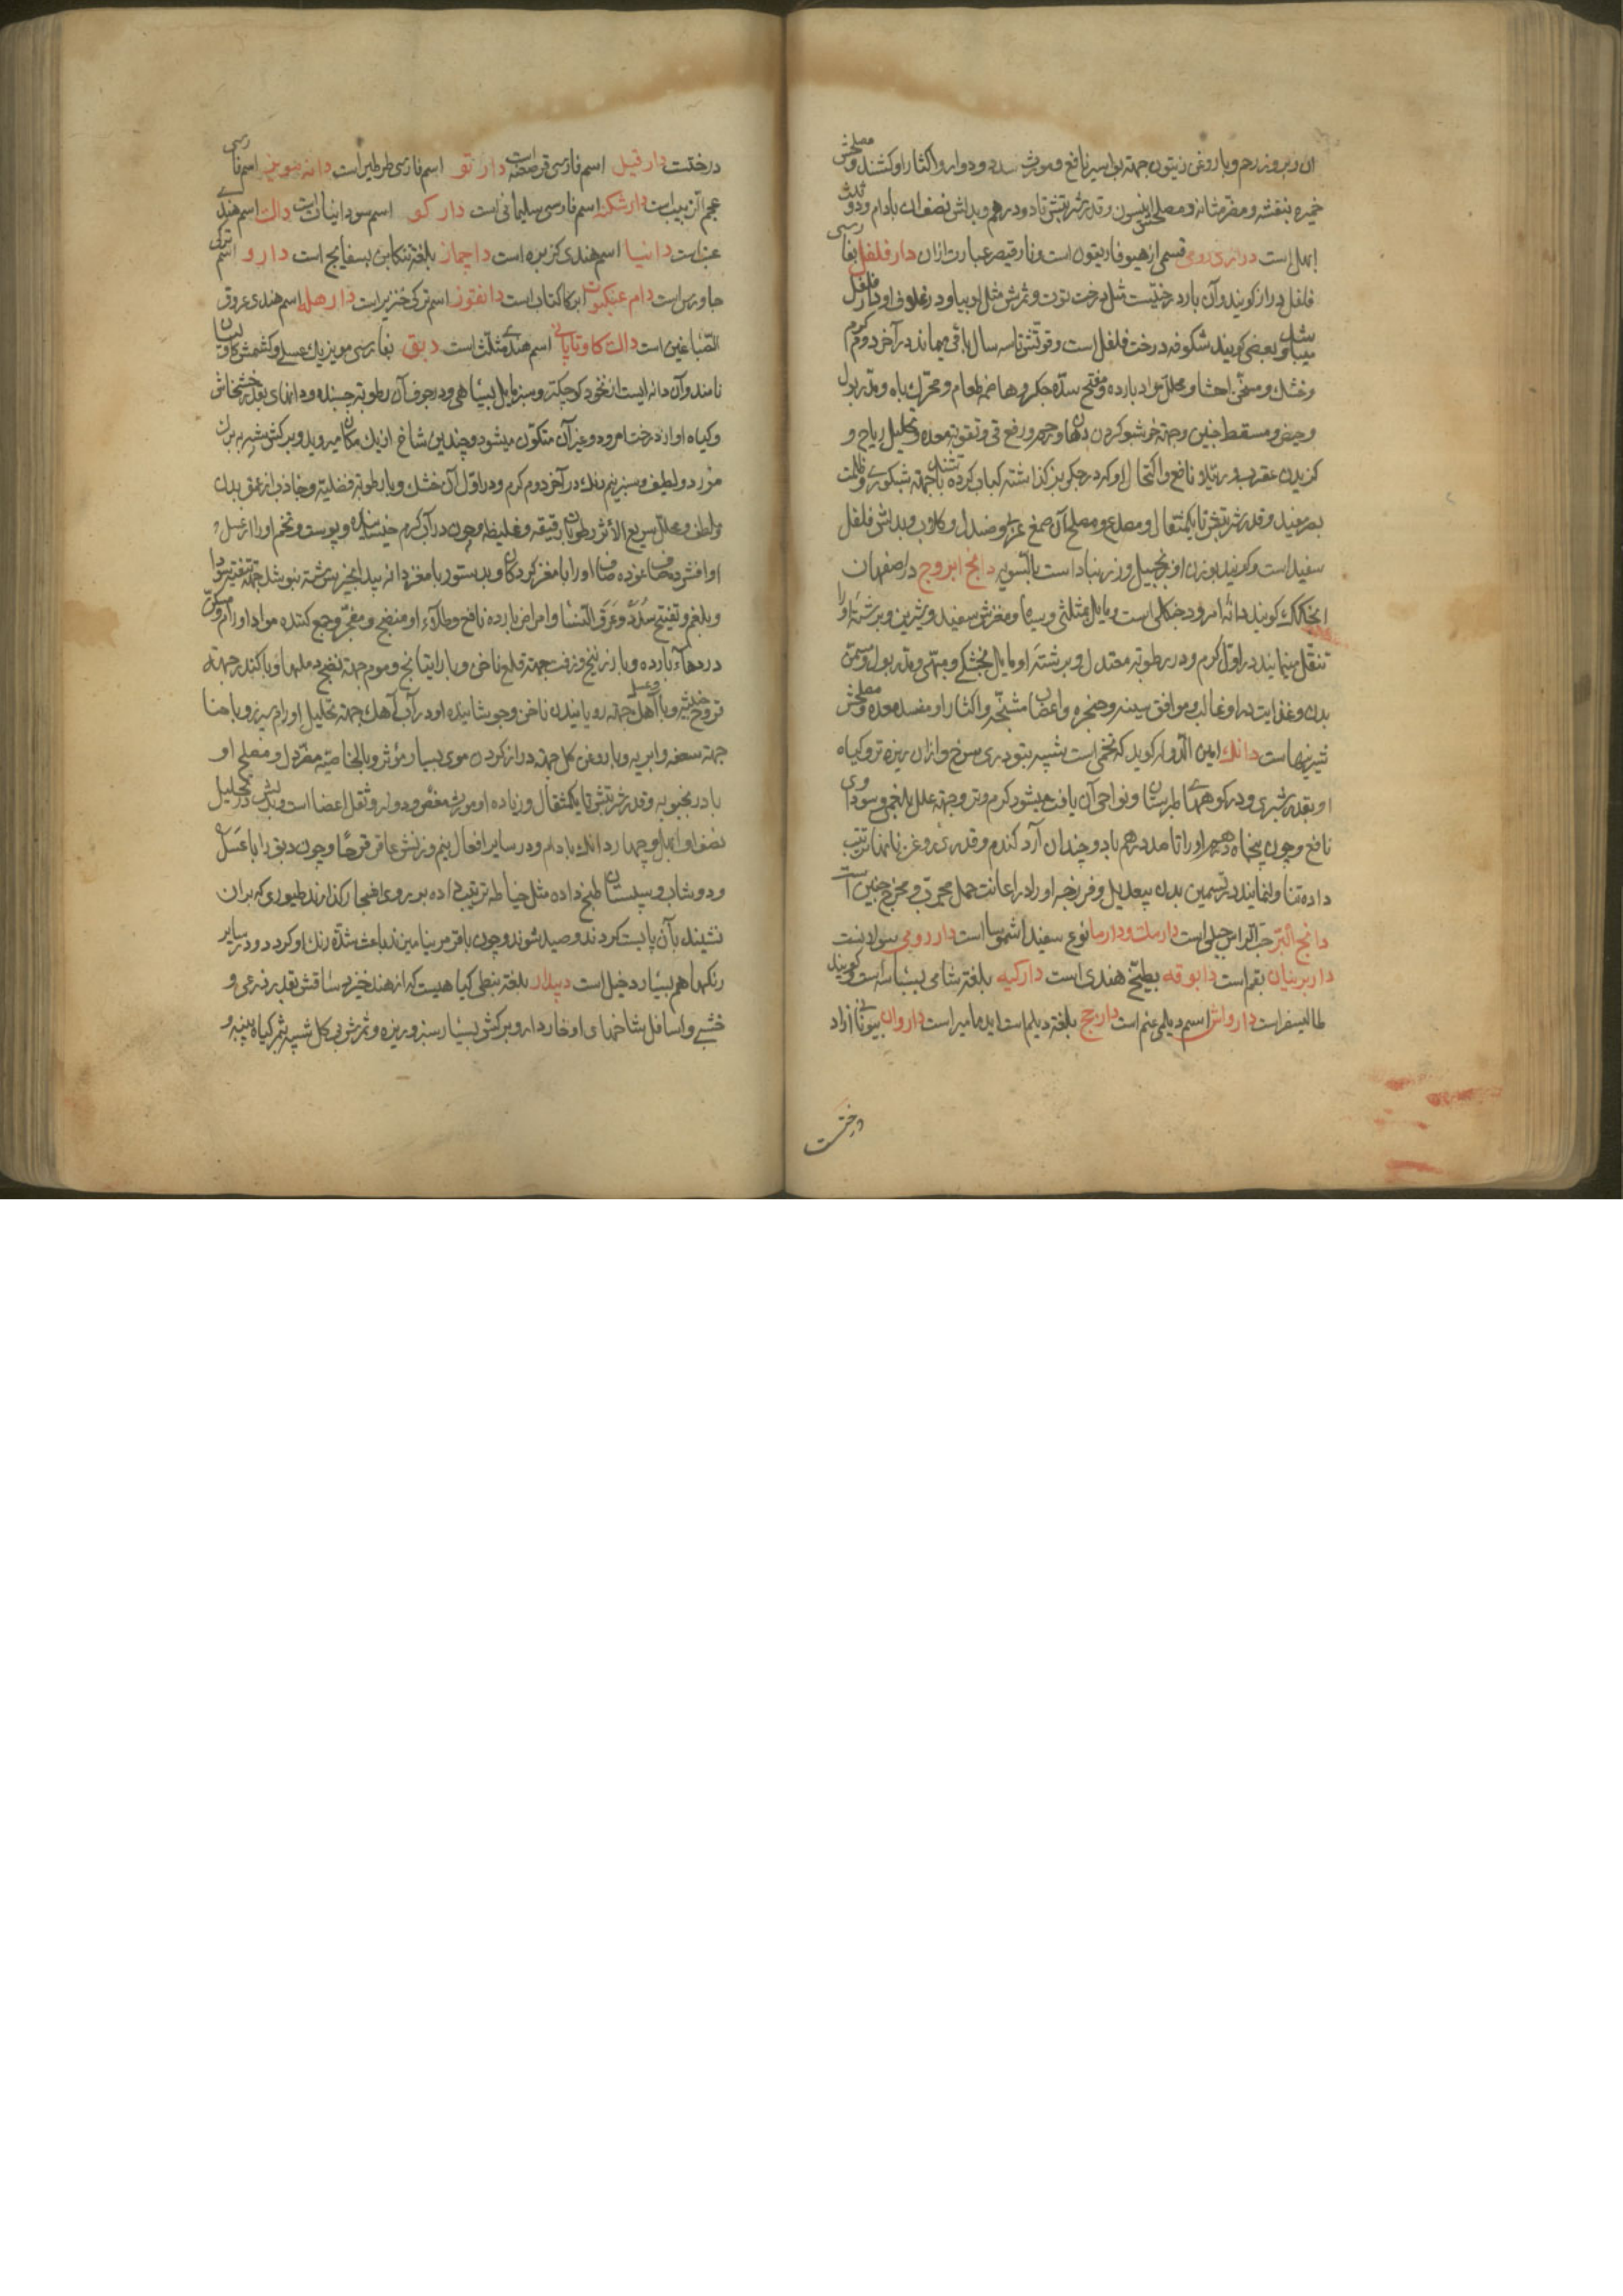 ان و بروز رحم و با روغن زیتون جهته بواسیر نافع و مورث سدد و دوار و اکثار او کشنده و مصلحش
خمیره بنفشه و مضر مثانه و مصلحش انیسون و قدر شربتش تا دو درهم و بدلش نصف ان بادام و دو ثلث
ابهل است دراری رومی قسمی از هیوفاریقون است و نارقیصر عبارت ازان دار فلفل بفارسی
فلفل دراز کویند و آن بار درختیست مثل درخت توت و ثمرش مثل لوبیا و در غلوفی او دار فلفل
میباشد و بعضی کویند شکوفه درخت فلفل است و قوتش تا سه سال باقی میماند در آخر دوم کرم
و خشك و مسخن احشا و محلل مواد بارده و مفتح سده جکر و هاضم طعام و محرك باه و مدر بول
و حیض و مسقط جنین و جهته خوشبو کردن دهان و جهر و رفع قی و تقویه معده و تحلیل ریاح و
کزیدن عقرب و رتیلا نافع و اکتحال او که در جکر بز کذاشته کباب کرده باشند جهته شبکوری و ظلمت
بصر مفید و قدر شربتش تا یکمثقال و مصدع و مصلح آن صمغ عربی و صندل و کلاب و بدلش فلفل
سفید است و کویند بوزن او زنجبیل و زرنباد است بالسویه دانج ابروج در اصفهان
انجکك کویند دانهٔ امرود جنکلی است و مایل بمثلثی و سیاه و مغزش سفید و شیرین و برشتهٔ او را
تنقل مینمایند در اول کرم و در رطوبه معتدل و برشتهٔ او مایل بخشکی و مبهی و مدر بول و مسمن
بدن و غذایت در او غالب و موافق سینه و حنجره و اعضاء متشنجه و اکثار او مفسد معده و مصلحش
شیرینیهاست دانك امین الدوله کوید که تخمی است شبیه بتودری سرخ و ازان ریزه تر و کیاه
او بقدر شبری و در کوههای طبرستان و نواحی آن یافت میشود کرم و تر و جهته علل بلغمی و سوداوی
نافع و چون پنجاه درهم او را تا صد درهم با دو چندان آرد کندم و قدری روغن نانها ترتیب
داده تناول نمایند در تسمین بدن بیعدیل و فرزجهٔ او را در اعانت حمل مجرب و مخرج جنین است
دانج البر حب الراس جبلی است دارملت و دارما نوع سفید اشموسا است دار رومی سولانست
داربرنیان بقم است دابوقه بطیخ هندی است دارکیه بلغته شامی بسباسه است و کویند
طالیسفر است دارواش اسم دیلمی عنم است دارمج بلغته دیلم است ایدمامیر است داروان بیونانی ازاد
درخت
درختست دارقیل اسم فارسی قرصعنه است دارتو اسم فارسی طرطیر است دانه مویز اسم فارسی
عجم الزبیب است دارشکنه اسم فارسی سلیمانی است دارکو اسم سودانیات است دالت اسم هندی
عنب است دانیا اسم هندی کزبره است داجماز بلغته تنکابن بسفایج است دارو اسم ترکی
جاورس است دام عنکبوت ابرکاکتاب است دانفوز اسم ترکی خنزیر است دارهلد اسم هندی عروق
الصباغین است دالت کاوتاپانی اسم هندی مثلث است دبق بفارسی مویزك عسلی و کشمش کاولیان
نامند و آن دانه ایست از نخود کوچکتر و سبز مایل بسیاهی و در جوف آن رطوبته چسبنده و دانهای بقدر خشخاش
و کیاه او از درخت امرود و غیر آن متکون میشود و چندین شاخ از یك مکان میروید و برکش شبیه ببرك
مورد و لطیف و سبز نیم رنك در آخر دوم کرم و در اول آن خشك و با رطوبته فضلیه و جاذب از عمق بدن
و لطف و محلل سریع الاثر رطوبات رقیقه و غلیظه و چون در آب کرم خیسانیده و پوست و تخم او را
او افشرده صاف نموده صاف او را با مغز کردکان و بدستور با مغز دانه بید انجیر سرشته بنوشند جهته تفتیت سودا
و بلغم و تفتیح سدد و عرق النسا و امراض بارده نافع و طلاء او منضج و مفجر و جمع کننده مواد اورام و مسکن
دردهاء بارده و با زرنیخ و زفت جهته قلع ناخن و با راتیانج و موم جهته نضج دملها و با کندر جهته
قروح خبیثه و با آهك و عسل جهته رویانیدن ناخن و جوشانیده او در آب آهك جهته تحلیل اورام سپرز و با حنا
جهته سعفه و ابریه و با روغن کل جهته دراز کردن موی بسیار مؤثر و بالخاصیته مضر دل و مصلح او
بادرنجبویه و قدر شربتش تا یکمثقال و زیاده او مورث مغص و دوار و ثقل اعضا است و بدلش در تحلیل
نصف او ابهل و چهار دانك بادام و در سایر افعال نیم وزنش عاقرقرحا و چون دبق را با عسل
و دوشاب و سپستان طبخ داده مثل خیاطه ترتیب داده بر روی اشجار کذارند طیوری که بران
نشیند بآن پابست کردند و صید شوند و چون با قرمز بیامیزند باعث شدة رنك او کردد و در سایر
رنکها هم بسیار دخیل است دبیدار بلغته نبطی کیاهیست که از هند خیزد ساقش بقدر ذرعی و
خشبی و اسافل شاخهای او خاردار و برکش بسیار سبز و ریزه و ثمرش بی کل شبیه بثمر کیاه پنبه و